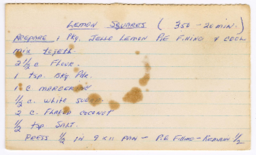 LEMON SQUARES ( 350 - 20 MIN.)
PREPARE 1 PKG. JELLO LEMON PIE FILLING & COOL
MIX TOGETHER
2 ½ C. FLOUR
1 tsp. BKG PDR.
1 C. MARGARINE
½ C. WHITE SUGAR
2 C. FLAKED COCONUT
½ tsp SALT
PRESS ½ IN 9 X 12 PAN - PIE FILLING -